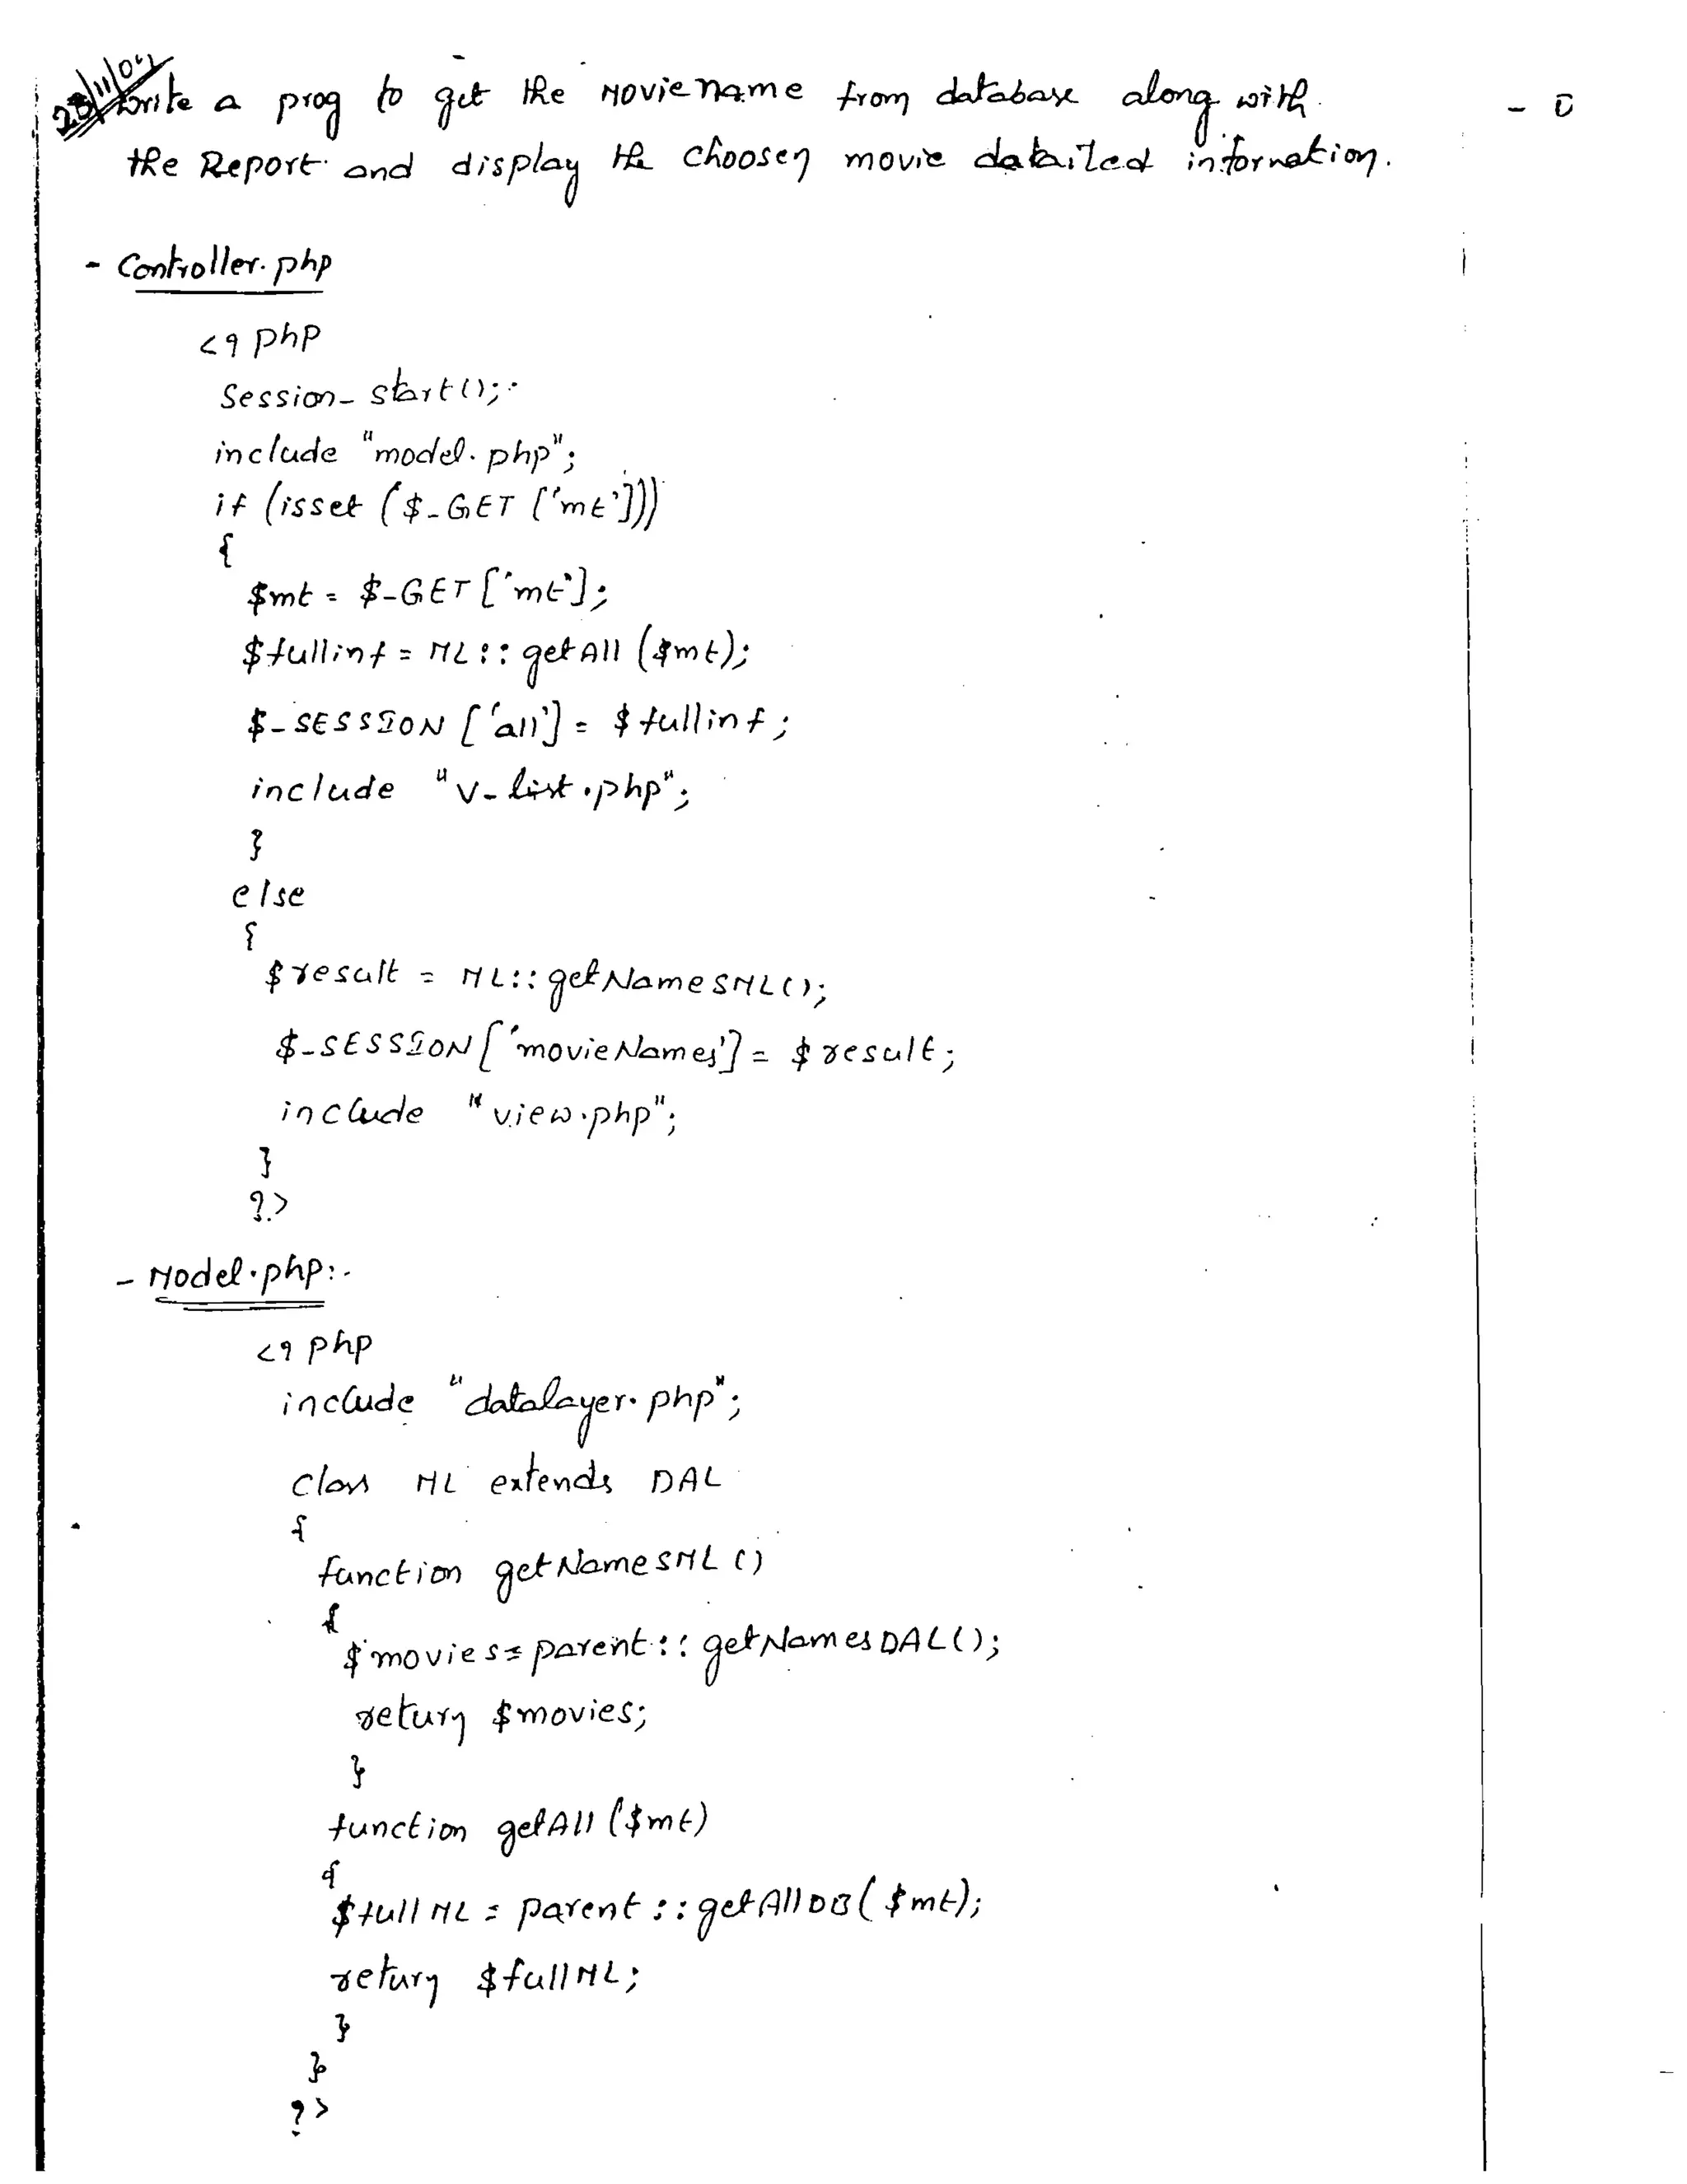 28/11/09
write a prog to get the Moviename from database along with
the Report and display the choosen movie datailed information.
- Controller.php
<?php
Session_start();
include "model.php";
if (isset ($_GET ['mt']))
{
$mt = $_GET ['mt'];
$fullinf = ML::getAll ($mt);
$_SESSION ['all'] = $fullinf;
include "v_list.php";
}
else
{
$result = ML::getNamesML();
$_SESSION ['movieNames'] = $result;
include "view.php";
}
?>
- Model.php:-
<?php
include "datalayer.php";
class ML extends DAL
{
function getNamesML ()
{
$movies = parent::getNamesDAL();
return $movies;
}
function getAll ($mt)
{
$fullML = parent::getAllDB( $mt);
return $fullML;
}
}
?>